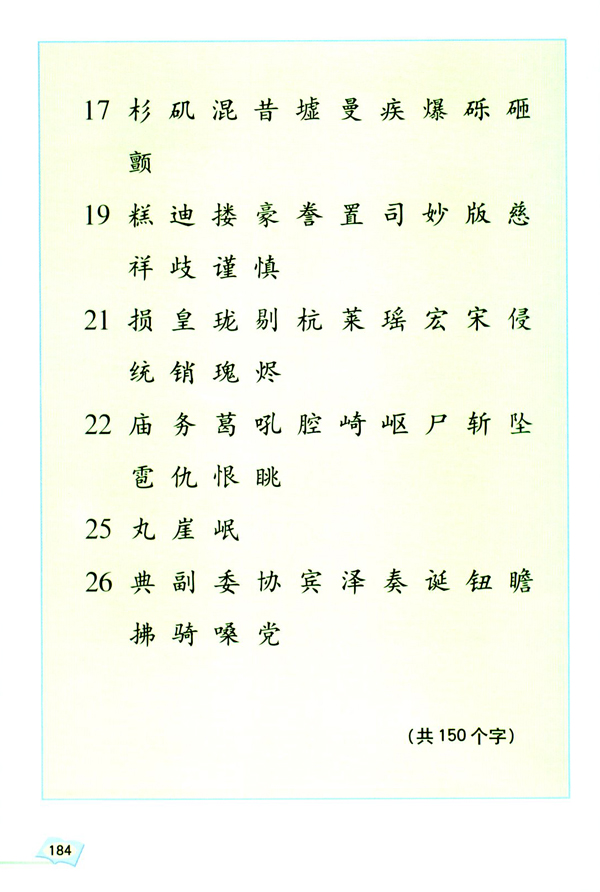 17 杉 矶 混 昔 墟 曼 疾 爆 砾 砸
颤
19 糕 迪 搂 豪 誊 置 司 妙 版 慈
祥 歧 谨 慎
21 损 皇 珑 剔 杭 莱 瑶 宏 宋 侵
统 销 瑰 烬
22 庙 务 葛 吼 腔 崎 岖 尸 斩 坠
雹 仇 恨 眺
25 丸 崖 岷
26 典 副 委 协 宾 泽 奏 诞 钮 瞻
拂 骑 嗓 党
(共150个字)
184